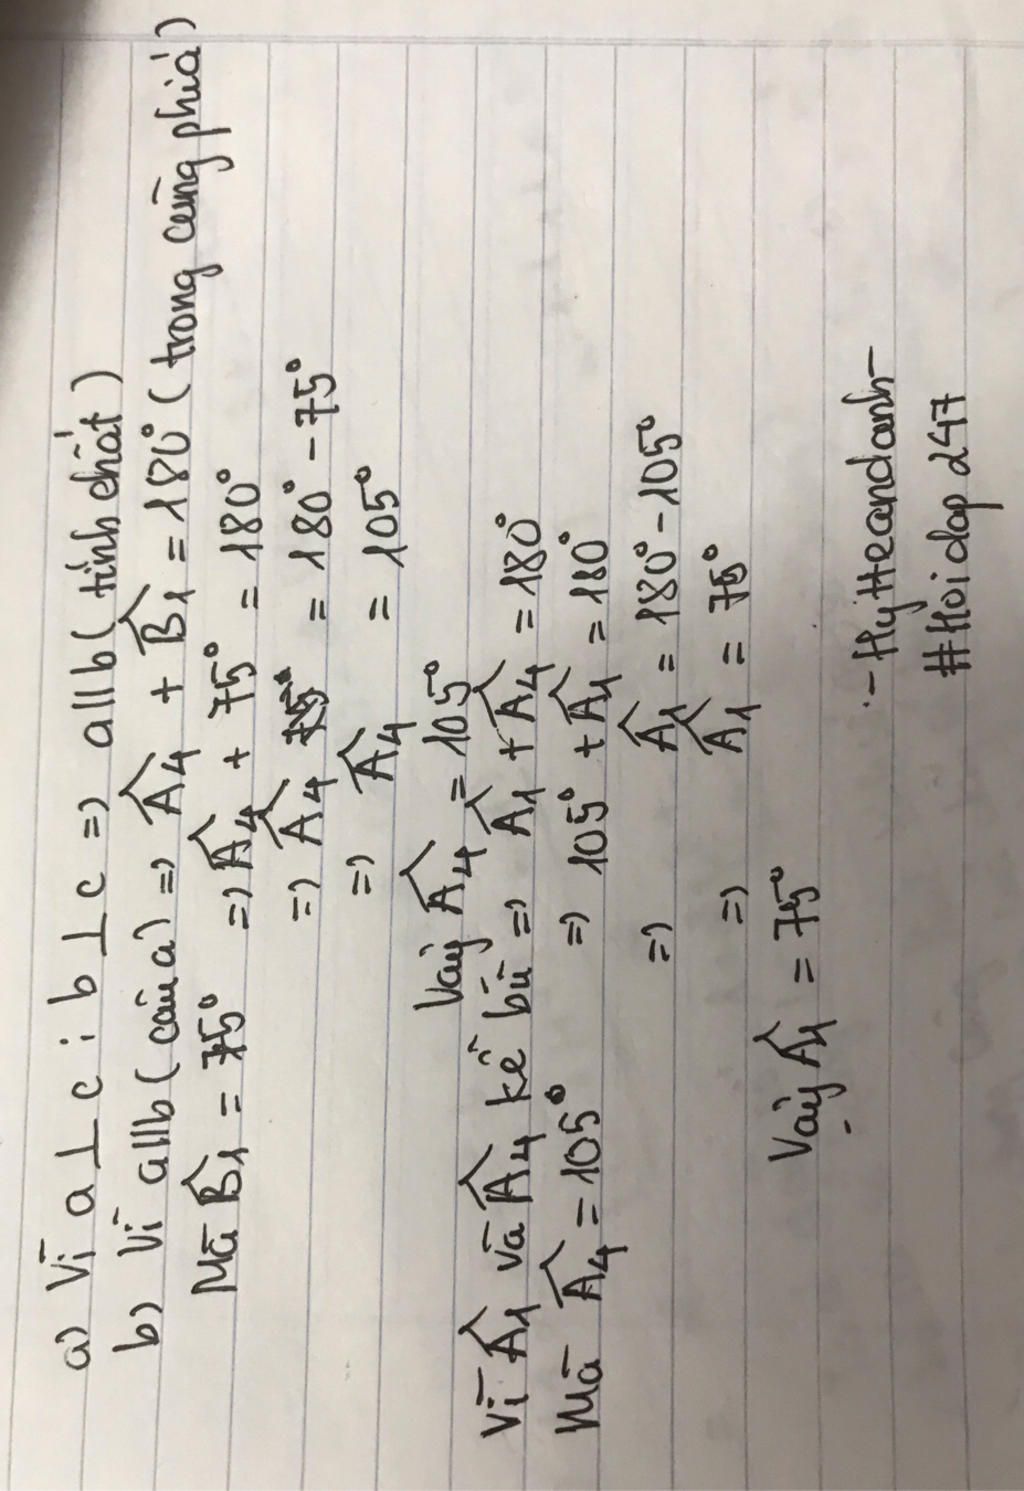 a) Vì a ⊥ c ; b ⊥ c => a // b ( tính chất )
b) Vì a // b ( câu a ) => Â4 + B̂1 = 180° ( trong cùng phía )
Mà B̂1 = 75° => Â4 + 75° = 180°
=> Â4 = 180° - 75°
=> Â4 = 105°
Vậy Â4 = 105°
Vì Â1 và Â4 kề bù => Â1 + Â4 = 180°
Mà Â4 = 105° => 105° + Â1 = 180°
=> Â1 = 180° - 105°
=> Â1 = 75°
Vậy Â1 = 75°
#Hoidap 247